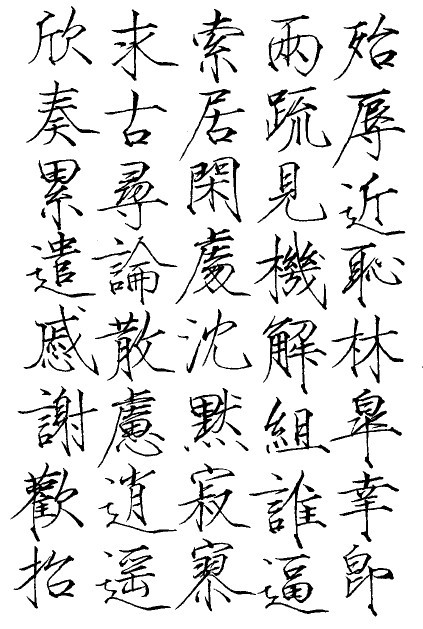 殆辱近恥林皐幸卽
兩疏見機解組誰逼
索居閑處沈默寂寥
求古尋論散慮逍遥
欣奏累遣慼謝歡招